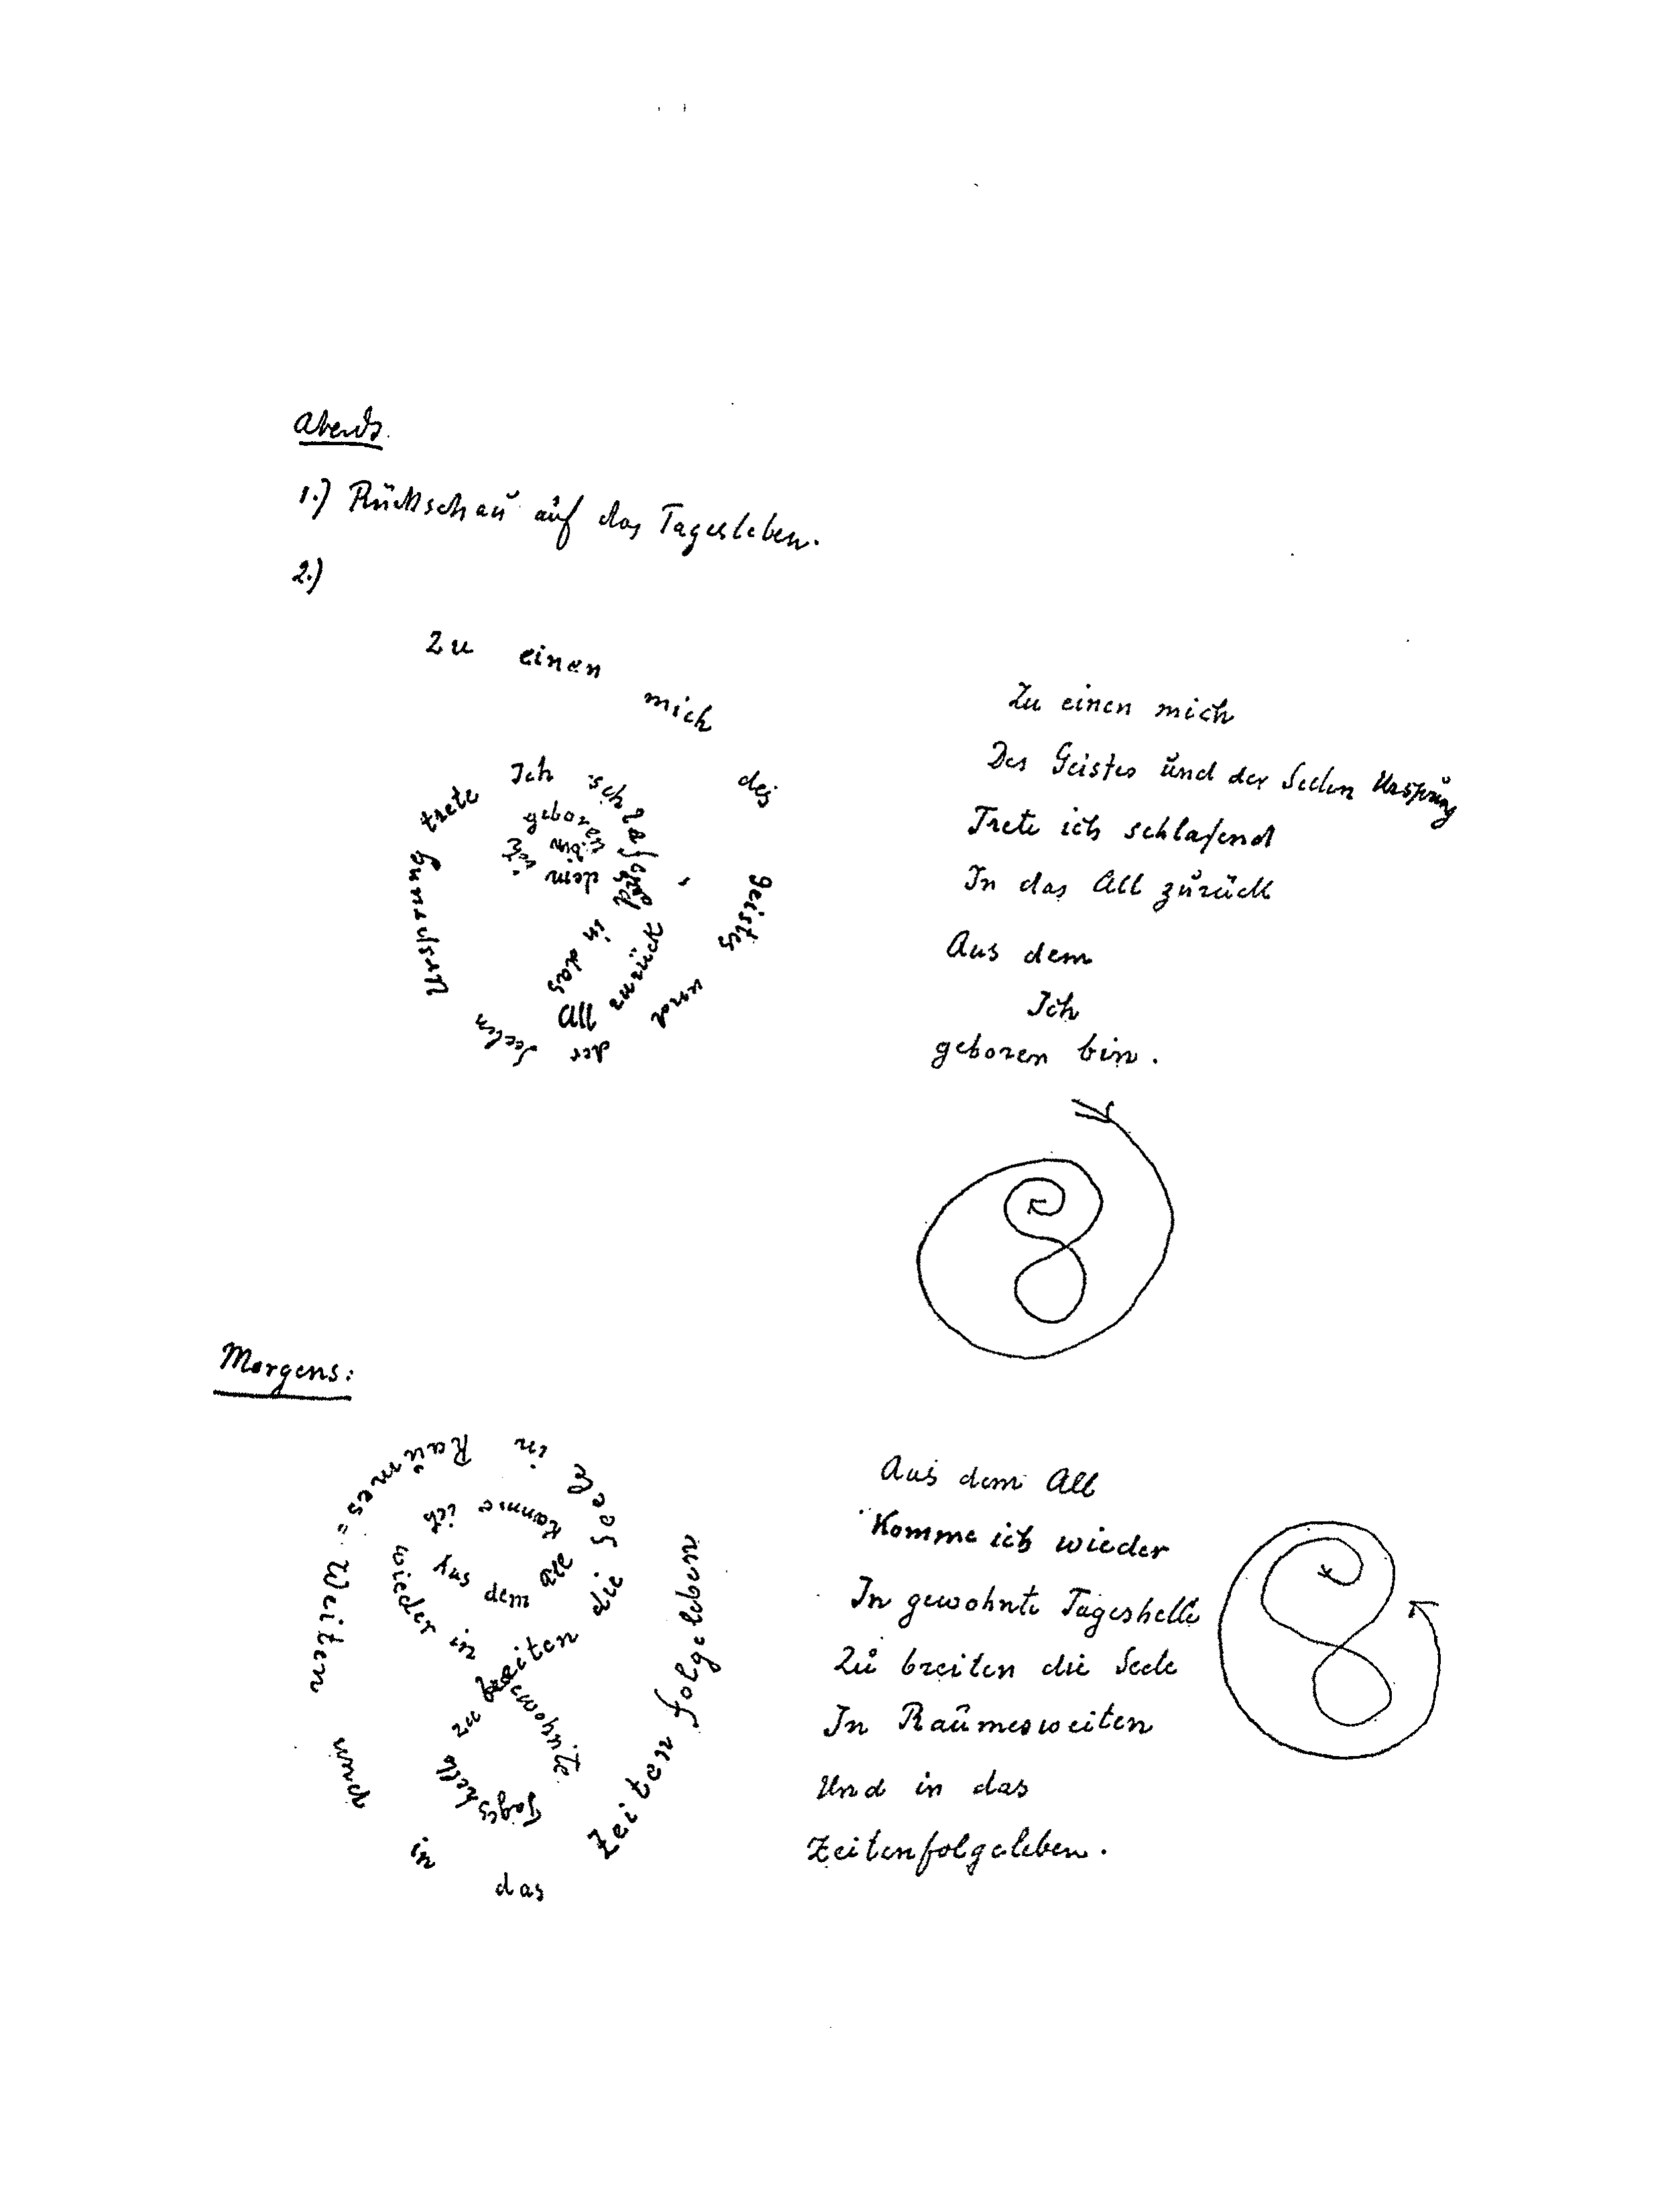 Abends.
1.) Rückschau auf das Tagesleben.
2.)
Zu einen mich des Geistes und der Seelen Ursprung trete Ich schlafend in das All zurück, dem Ich bin geboren
Zu einen mich
Des Geistes und der Seelen Ursprung
Trete ich schlafend
In das All zurück
Aus dem
Ich
geboren bin.
Morgens:
Aus dem All komme ich wieder in gewohnte Tageshelle zu breiten die Seele in Raumes=Weiten und in das Zeitenfolgeleben
Aus dem All
Komme ich wieder
In gewohnte Tageshelle
Zu breiten die Seele
In Raumesweiten
Und in das
Zeitenfolgeleben.